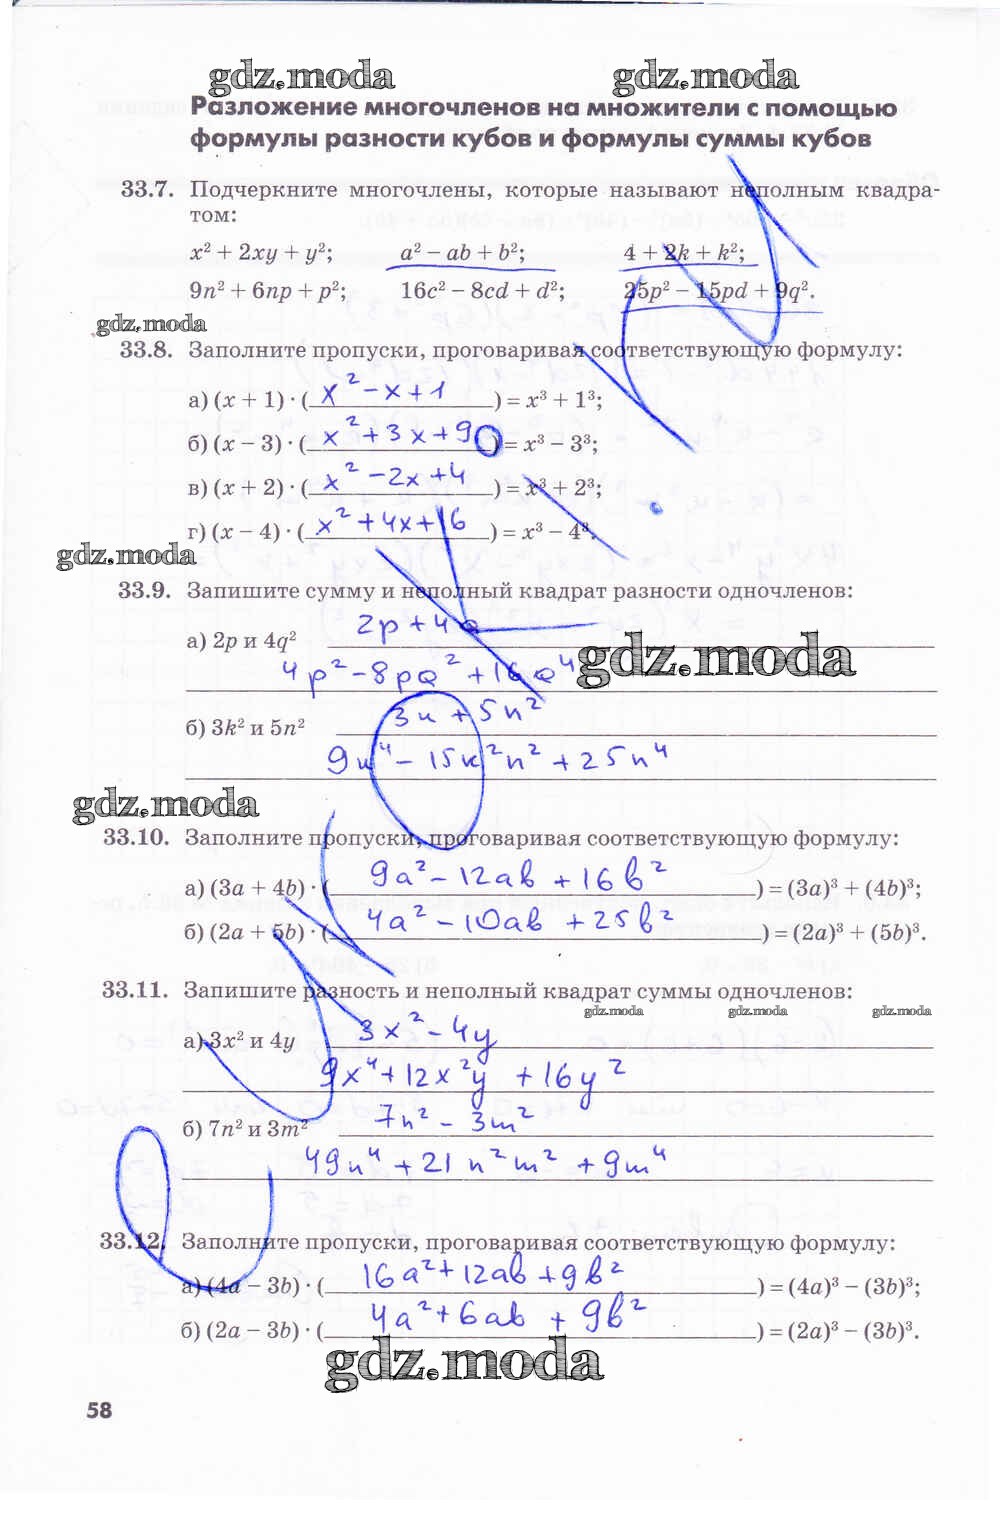 gdz.moda gdz.moda
Разложение многочленов на множители с помощью
формулы разности кубов и формулы суммы кубов
33.7. Подчеркните многочлены, которые называют неполным квадра-
том:
x² + 2xy + y²; a² − ab + b²; 4 + 2k + k²;
9n² + 6np + p²; 16c² − 8cd + d²; 25p² − 15pd + 9q².
gdz.moda
33.8. Заполните пропуски, проговаривая соответствующую формулу:
а) (x + 1) · ( x² − x + 1 ) = x³ + 1³;
б) (x − 3) · ( x² + 3x + 9 ) = x³ − 3³;
в) (x + 2) · ( x² − 2x + 4 ) = x³ + 2³;
г) (x − 4) · ( x² + 4x + 16 ) = x³ − 4³.
gdz.moda
33.9. Запишите сумму и неполный квадрат разности одночленов:
а) 2p и 4q² 2p + 4q
gdz.moda
4p² − 8pq² + 16q⁴
б) 3k² и 5n² 3k + 5n²
9k⁴ − 15k²n² + 25n⁴
gdz.moda
33.10. Заполните пропуски, проговаривая соответствующую формулу:
а) (3a + 4b) · ( 9a² − 12ab + 16b² ) = (3a)³ + (4b)³;
б) (2a + 5b) · ( 4a² − 10ab + 25b² ) = (2a)³ + (5b)³.
33.11. Запишите разность и неполный квадрат суммы одночленов:
gdz.moda gdz.moda gdz.moda
а) 3x² и 4y 3x² − 4y
9x⁴ + 12x²y + 16y²
б) 7n² и 3m² 7n² − 3m²
49n⁴ + 21n²m² + 9m⁴
33.12. Заполните пропуски, проговаривая соответствующую формулу:
а) (4a − 3b) · ( 16a² + 12ab + 9b² ) = (4a)³ − (3b)³;
б) (2a − 3b) · ( 4a² + 6ab + 9b² ) = (2a)³ − (3b)³.
gdz.moda
58